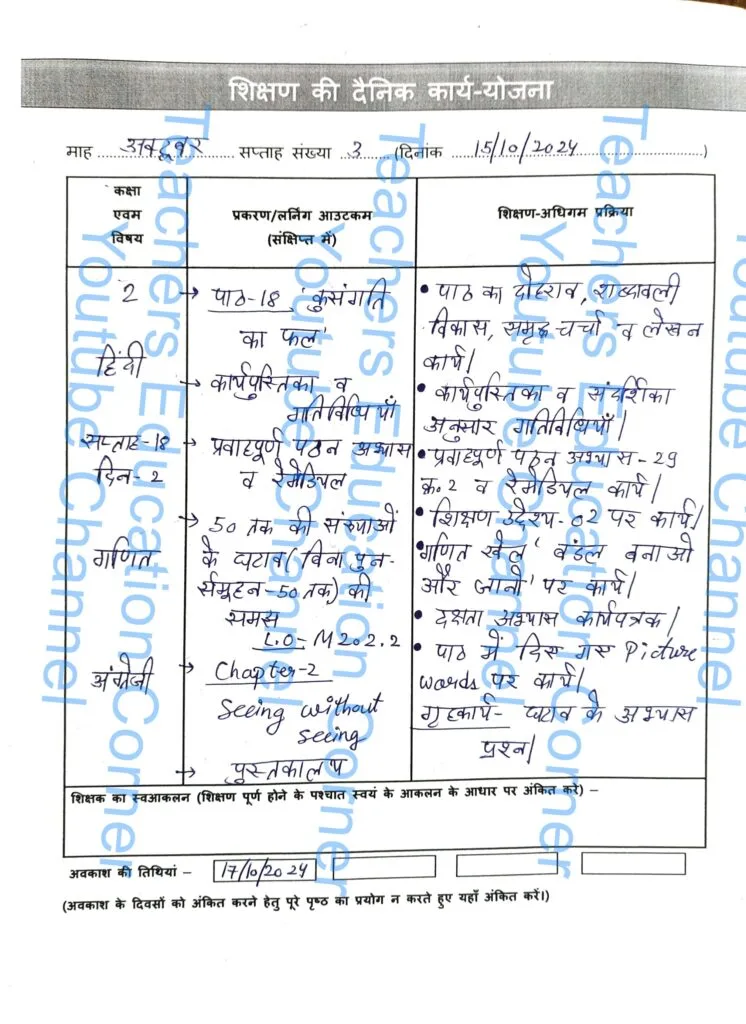 शिक्षण की दैनिक कार्य-योजना
माह अक्टूबर सप्ताह संख्या 3 (दिनांक 15/10/2024)
कक्षा
एवम
विषय
प्रकरण/लर्निंग आउटकम
(संक्षिप्त में)
शिक्षण-अधिगम प्रक्रिया
2
हिंदी
सप्ताह-18
दिन-2
गणित
अंग्रेजी
→ पाठ-18 'कुसंगति
का फल'
→ कार्यपुस्तिका व
गतिविधियाँ
→ प्रवाहपूर्ण पठन अभ्यास
व रेमेडियल
→ 50 तक की संख्याओं
के घटाव (बिना पुन-
र्समूहन-50 तक) की
समझ
L.O-M202.2
→ Chapter-2
Seeing without
seeing
→ पुस्तकालय
• पाठ का दोहराव, शब्दावली
विकास, समूह चर्चा व लेखन
कार्य।
• कार्यपुस्तिका व संदर्शिका
अनुसार गतिविधियाँ।
• प्रवाहपूर्ण पठन अभ्यास-29
क्र.2 व रेमेडियल कार्य।
• शिक्षण उद्देश्य-02 पर कार्य।
• गणित खेल 'बंडल बनाओ
और जानो' पर कार्य।
• दक्षता अभ्यास कार्यपत्रक।
• पाठ में दिए गए Picture
words पर कार्य।
गृहकार्य- घटाव के अभ्यास
प्रश्न।
शिक्षक का स्वआकलन (शिक्षण पूर्ण होने के पश्चात स्वयं के आकलन के आधार पर अंकित करें) –
अवकाश की तिथियां – 17/10/2024
(अवकाश के दिवसों को अंकित करने हेतु पूरे पृष्ठ का प्रयोग न करते हुए यहाँ अंकित करें।)
Teachers Education Corner
Youtube Channel
Teachers Education Corner
Youtube Channel
Teachers Education Corner
Youtube Channel